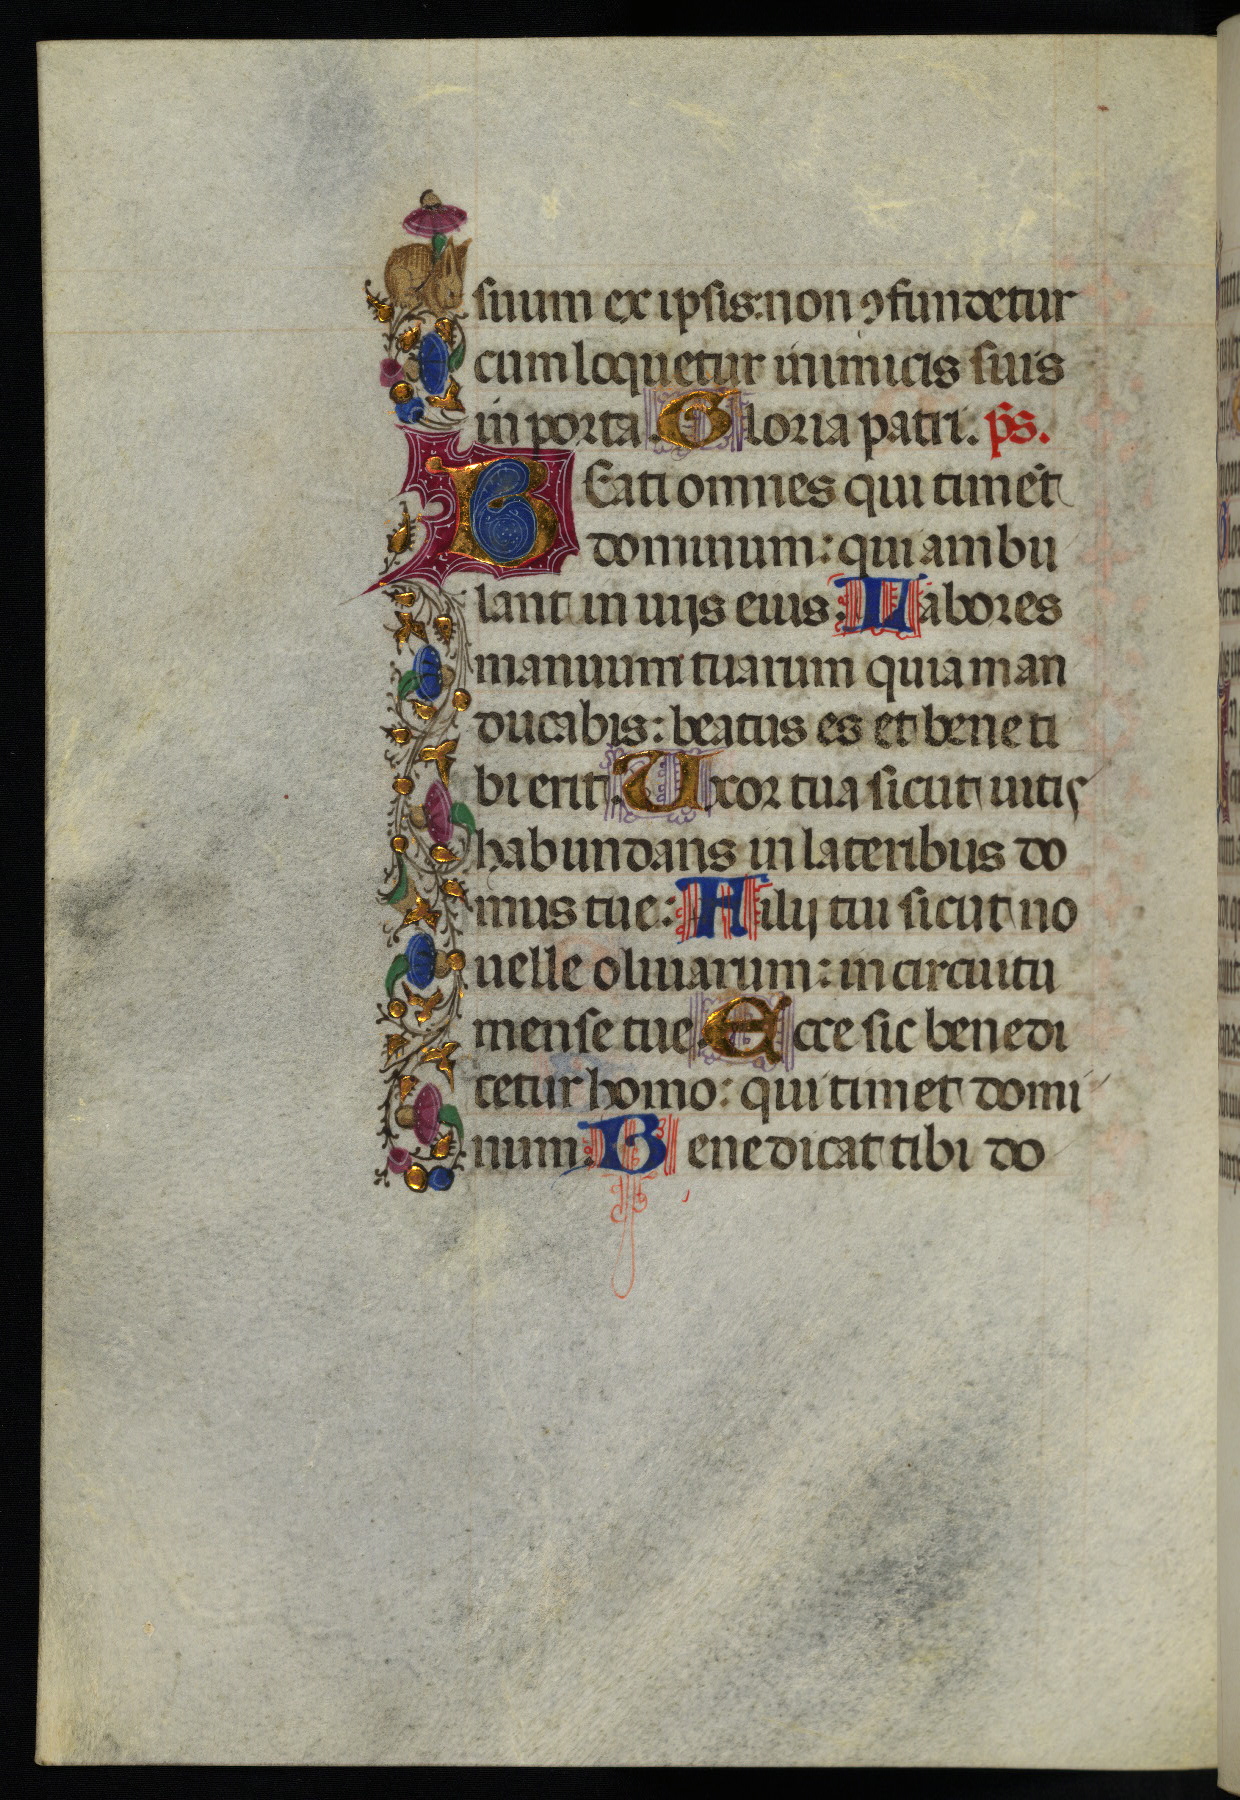 suum ex ipsis: non ꝯfundetur
cum loquetur inimicis suis
in porta. Gloria patri. ps.
Beati omnes qui timēt
dominum: qui ambu
lant in uijs eius. Labores
manuum tuarum quia man
ducabis: beatus es et bene ti
bi erit. Uxor tua sicut uitis
habundans in lateribus do
mus tue: Filij tui sicut no
uelle oliuarum: in circuitu
mense tue. Ecce sic benedi
cetur homo: qui timet domi
num. Benedicat tibi do